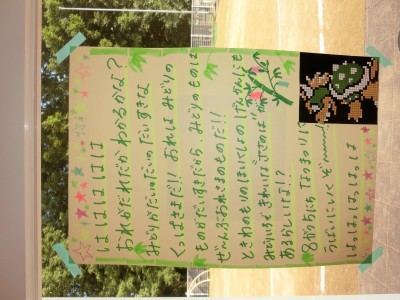 はははは
おれがだれだかわかるかな?
みどりがだいだいだいすきな
くっぱさまだ!!おれはみどりの
ものがだいすきだから、みどりのものは
ぜ〜んぶおれさまのものだ!!
ときわのもりのほいくしょの
みどりいろで きれいな
あるらしいな!?
8がつ なつまつり
うばいにいくぞ〜〜〜!
はっはっはっはっはっは